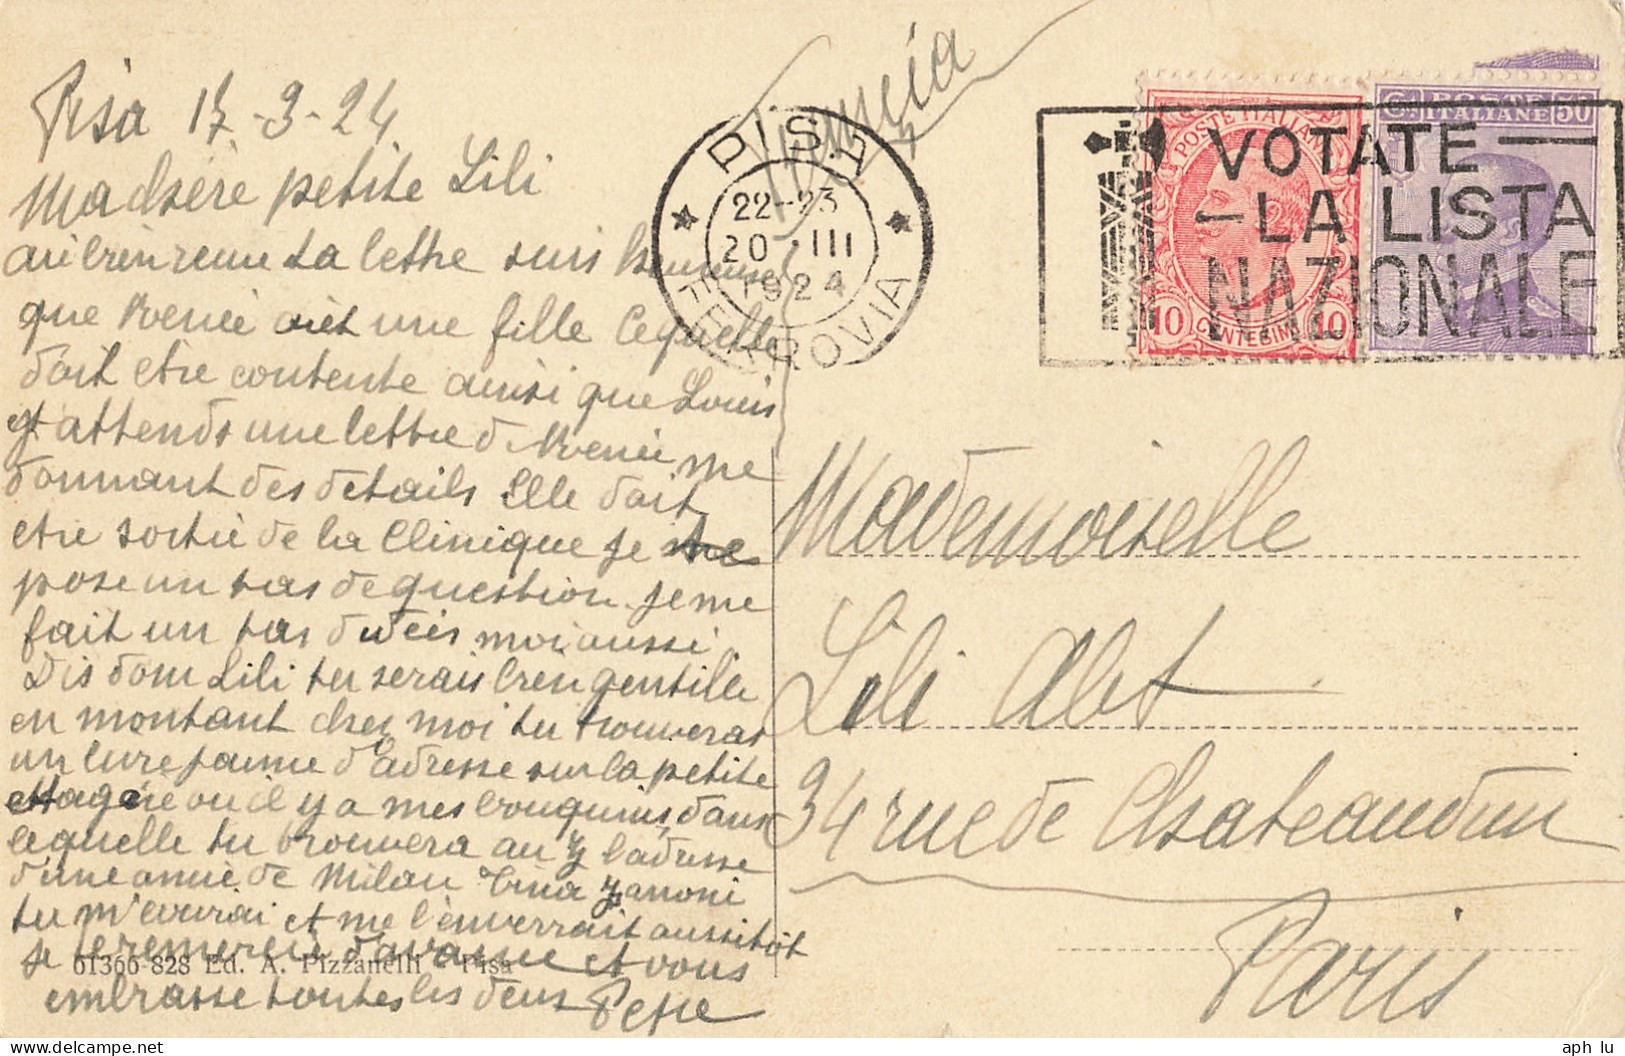 Pisa 17-3-24
Ma chère petite Lili
ai bien reçu ta lettre suis heureuse
que Renée ait une fille lequelle
doit etre contente ainsi que Louis
et attends une lettre d Renée me
donnant des details Elle doit
etre sortie de la Clinique je me
pose un tas de question je me
fait un tas d'idées moi aussi
Dis donc Lili tu serais bien gentille
en montant chez moi tu trouveras
un livre jaune d'adresse sur la petite
etagere ou il y a mes bouquins, dans
lequelle tu trouvera au Z l'adresse
d'une amie de Milan Tina Zanoni
tu m'ecrirai et me l'enverrait aussitôt
je remercie d'avance et vous
embrasse toutes les deux
61366-828 Ed. A. Pizzanelli - Pisa
Francia
PISA
22-23
20 III
1924
FERROVIA
VOTATE
LA LISTA
NAZIONALE
POSTE ITALIANE
10 CENTESIMI 10
Ct. POSTE 50
ITALIANE
Mademoiselle
Lili Abt
34 rue de Chateaudun
Paris
aph lu